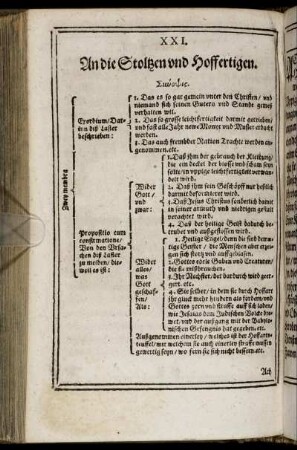 XXI.
An die Stoltzen vnd Hoffertigen.
Zwey membra
Exordium/Dar-
in diß Laster
beschrieben:
1. Das es so gar gemein vnter den Christen/ vnd
niemand sich seines Guters vnd Stands gemeß
verhalten will.
2. Das so grosse leichfertigkeit darmit getrieben/
vnd fast alle Jahr new Monier vnd Muster erdacht
werden.
3. Das auch frembder Nation Trachte werden an-
genommen. etc.
Propositio cum
confirmatione/
Von den Vrsa-
chen diß Laster
zu meiden/ die-
weil es ist:
Wider
Gott/
vnd
zwar:
1. Das ihm der gebrauch der Kleidung/
die ein deckel der blosse vnd scham sein
solte/ in vppige leichtfertigkeit verwan-
delt wird.
2. Das ihm sein Geschöpff nur heßlich
darmit deformiret wird.
3. Das Jesus Christus hönlich damit
in seiner armuth vnd nidrigen gestalt
verachtet wird.
4. Das der heilige Geist dadurch be-
trübet vnd außgestossen wird.
Wider
alles/
was
Gott
geschaf-
fen/
Als:
1. Heilige Engel/ denn die sind demü-
tige Geister/ die Menschen aber erzei-
gen sich stoltz vnd auffgeblasen.
2. Gottes edele Gaben vnd Creaturen/
die sie mißbrauchen.
3. Ihr Nächster/ der dardurch wird geer-
gert. etc.
4. Sie selber/ in dem sie durch Hoffart
ihr glück mehr hindern als fördern/ vnd
Gottes zorn vnd straffe auff sich laden/
wie Jesaias dem Jüdischen Volcke drew-
et/ vnd der außgang mit der Babylo-
nischen Gefengnis hat gegeben. etc.
Außgenommen einerley/ welches ist der Hoffarts-
teuffel/ mit welchem sie auch einerley straffe müssen
gewertig seyn/ wo sern sie sich nicht bessern. etc.
Ach